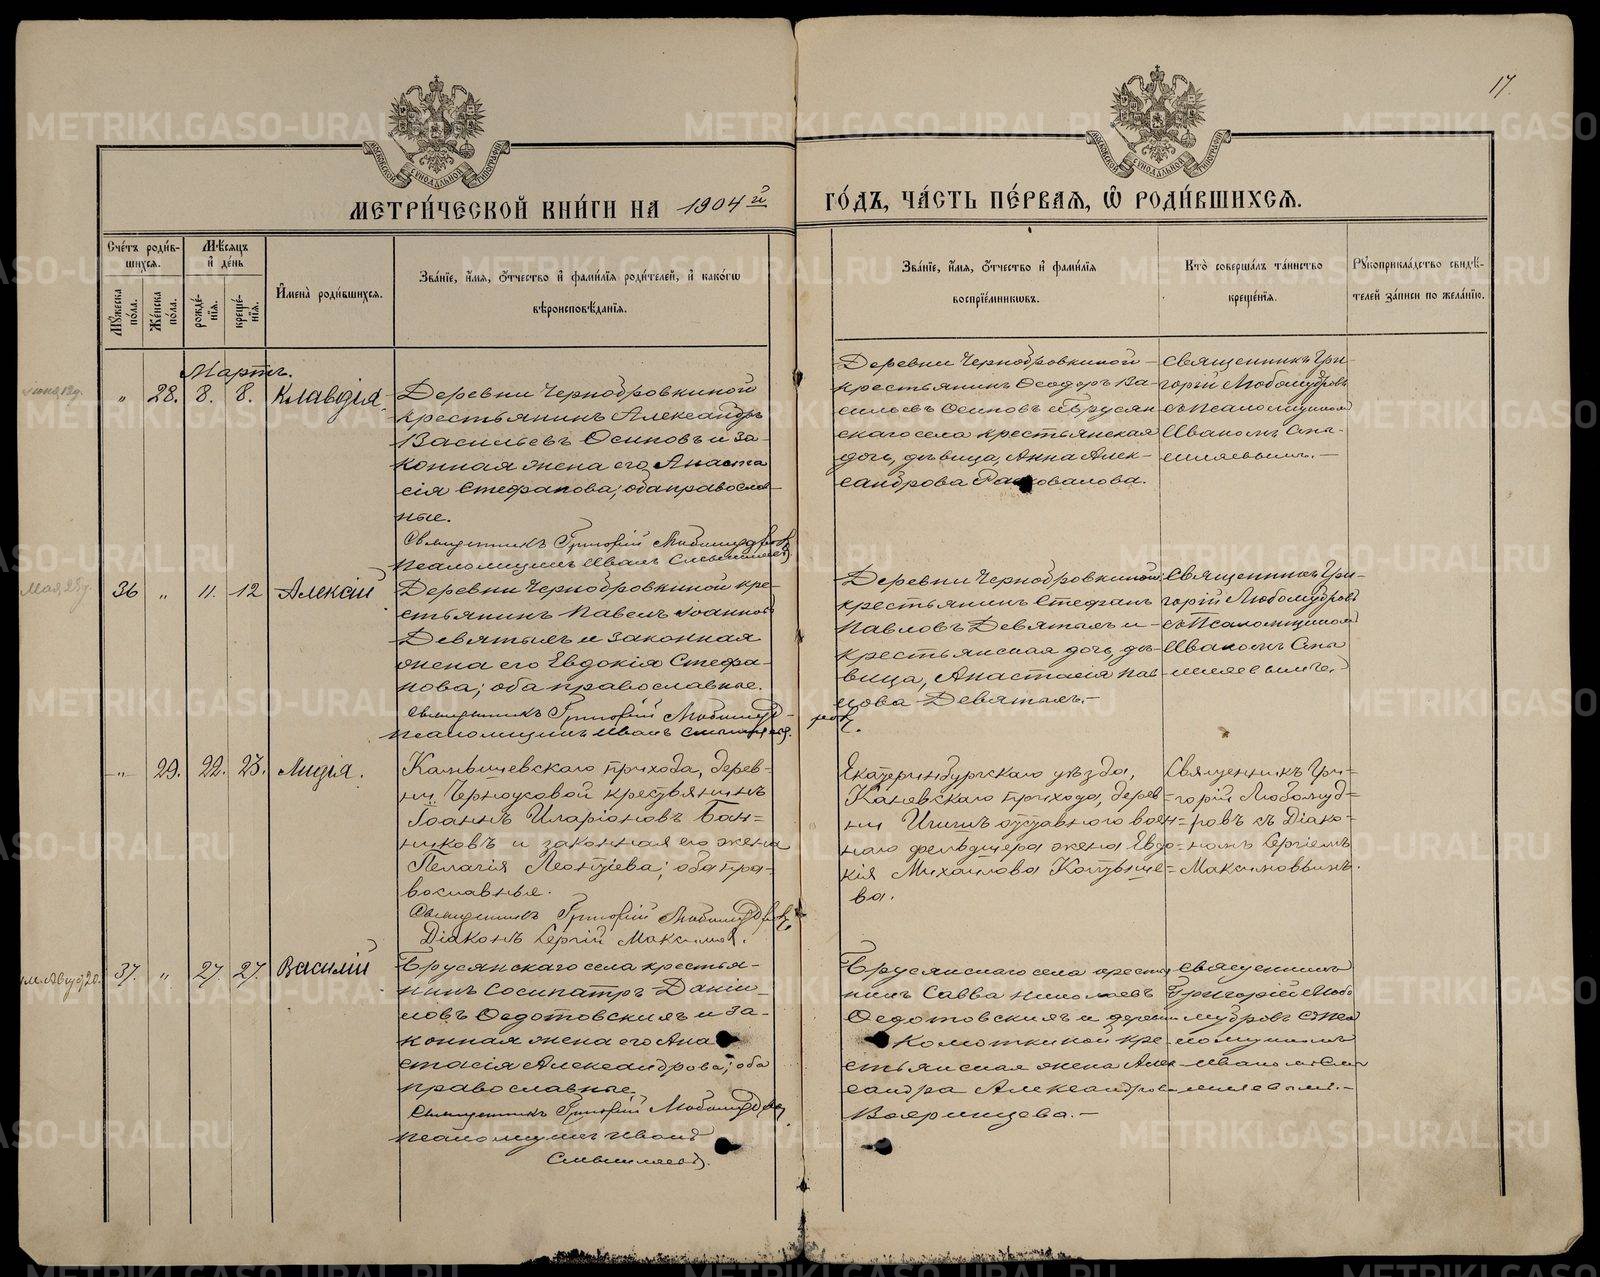 17.
МЕТРИ́ЧЕСКОЙ КНИ́ГИ НА 1904 й
ГО́ДЪ, ЧА́СТЬ ПЕ́РВАЯ, Ѡ РОДИ́ВШИХСЯ.
Сче́тъ роди́в-
шихся.
Мꙋ́жеска по́ла.
Же́нска по́ла.
Мѣ́сяцъ
и҆ де́нь
рожде́-
нїя.
креще́-
нїя.
И҆мена̀ роди́вшихся.
Зва́нїе, и҆́мя, ѻ҆́тчество и҆ фами́лїя роди́телей, и҆ како́гѡ
вѣроисповѣ́данїя.
Зва́нїе, и҆́мя, ѻ҆́тчество и҆ фами́лїя
воспрїе́мникѡвъ.
Кто̀ соверша́лъ та́инство
креще́нїя.
Рꙋкоприкла́дство свидѣ́-
телей за́писи по жела́нїю.
Мартъ.
„ 28. 8. 8. Клавдія.
Деревни Чернобровкиной
крестьянинъ Александръ
Васильевъ Осиповъ и за-
конная жена его Анаста
сія Стефанова; оба православ-
ные.
Священникъ Григорій Любомудровъ
Псаломщикъ Иванъ Смышляевъ
Деревни Чернобровкиной
крестьянинъ Ѳеодоръ Ва-
сильевъ Осиповъ и Брусян
скаго села крестьянская
дочь, дѣвица, Анна Алек-
сандрова
Священникъ Гри-
горій Любомудровъ
съ Псаломщикомъ
Иваномъ Смы-
шляевымъ.
36 „ 11. 12 Алексій
Деревни Чернобровкиной кре-
стьянинъ Павелъ Іоанновъ
Девятыхъ и законная
жена его Евдокія Стефа-
нова; оба православные.
Священникъ Григорій Любомудровъ
Псаломщикъ Иванъ Смышляевъ
Деревни Чернобровкиной
крестьянинъ Стефанъ
Павловъ Девятыхъ и
крестьянская дочь, дѣ-
вица, Анастасія Пав-
лова Девятыхъ.
Священникъ Гри-
горій Любомудровъ
съ Псаломщикомъ
Иваномъ Смы
шляевымъ.
„ 29. 22. 23. Лидія.
прихода, дерев-
ни Черноусовой крестьянинъ
Іоаннъ Иларіоновъ Бан=
никовъ и законная его жена
Пелагія Леонтіева; оба пра-
вославные.
Священникъ Григорій Любомудровъ
Діаконъ Сергій Максимовъ.
Екатеринбургскаго уѣзда,
прихода, дерев=
ни отставного воен=
наго фельдшера жена Евдо=
кія Михаилова
ва.
Священникъ Гри=
горій Любомуд=
ровъ съ Діако-
номъ Сергіемъ
Максимовымъ.
37. „ 27. 27. Василій
Брусянскаго села крестья-
нинъ Сосипатръ Даніи-
ловъ Ѳедотовскихъ и за-
конная жена его Ана
стасія Александрова; оба
православные.
Священникъ Григорій Любомудровъ
Псаломщикъ Иванъ
Смышляевъ.
Брусянскаго села крестья
нинъ Савва Николаевъ
Ѳедотовскихъ и деревни
Колюткиной кре-
стьянская жена Алек
сандра Александрова
Вояринцева.
Священникъ
Григорій Любо
мудровъ съ Пса
ломщикомъ
Иваномъ Смы
шляевымъ.